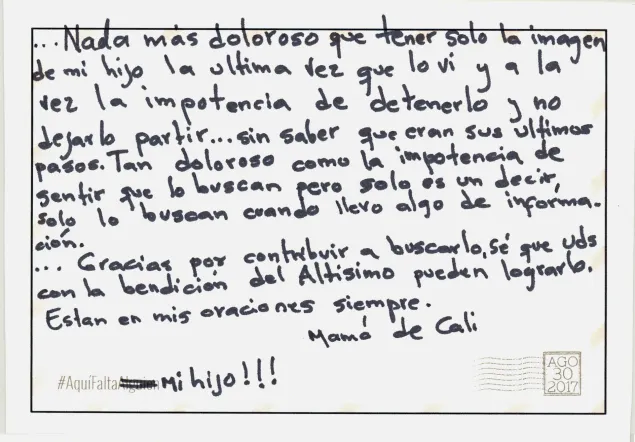 ... Nada más doloroso que tener solo la imagen
de mi hijo la ultima vez que lo vi y a la
vez la impotencia de detenerlo y no
dejarlo partir... sin saber que eran sus ultimos
pasos. Tan doloroso como la impotencia de
sentir que lo buscan pero solo es un decir,
solo lo buscan cuando llevo algo de informa-
ción.
... Gracias por contribuir a buscarlo, sé que uds
con la bendición del Altísimo pueden lograrlo.
Estan en mis oraciones siempre.
Mamá de Cali
#AquíFaltaAlguien Mi hijo!!!
AGO
30
2017